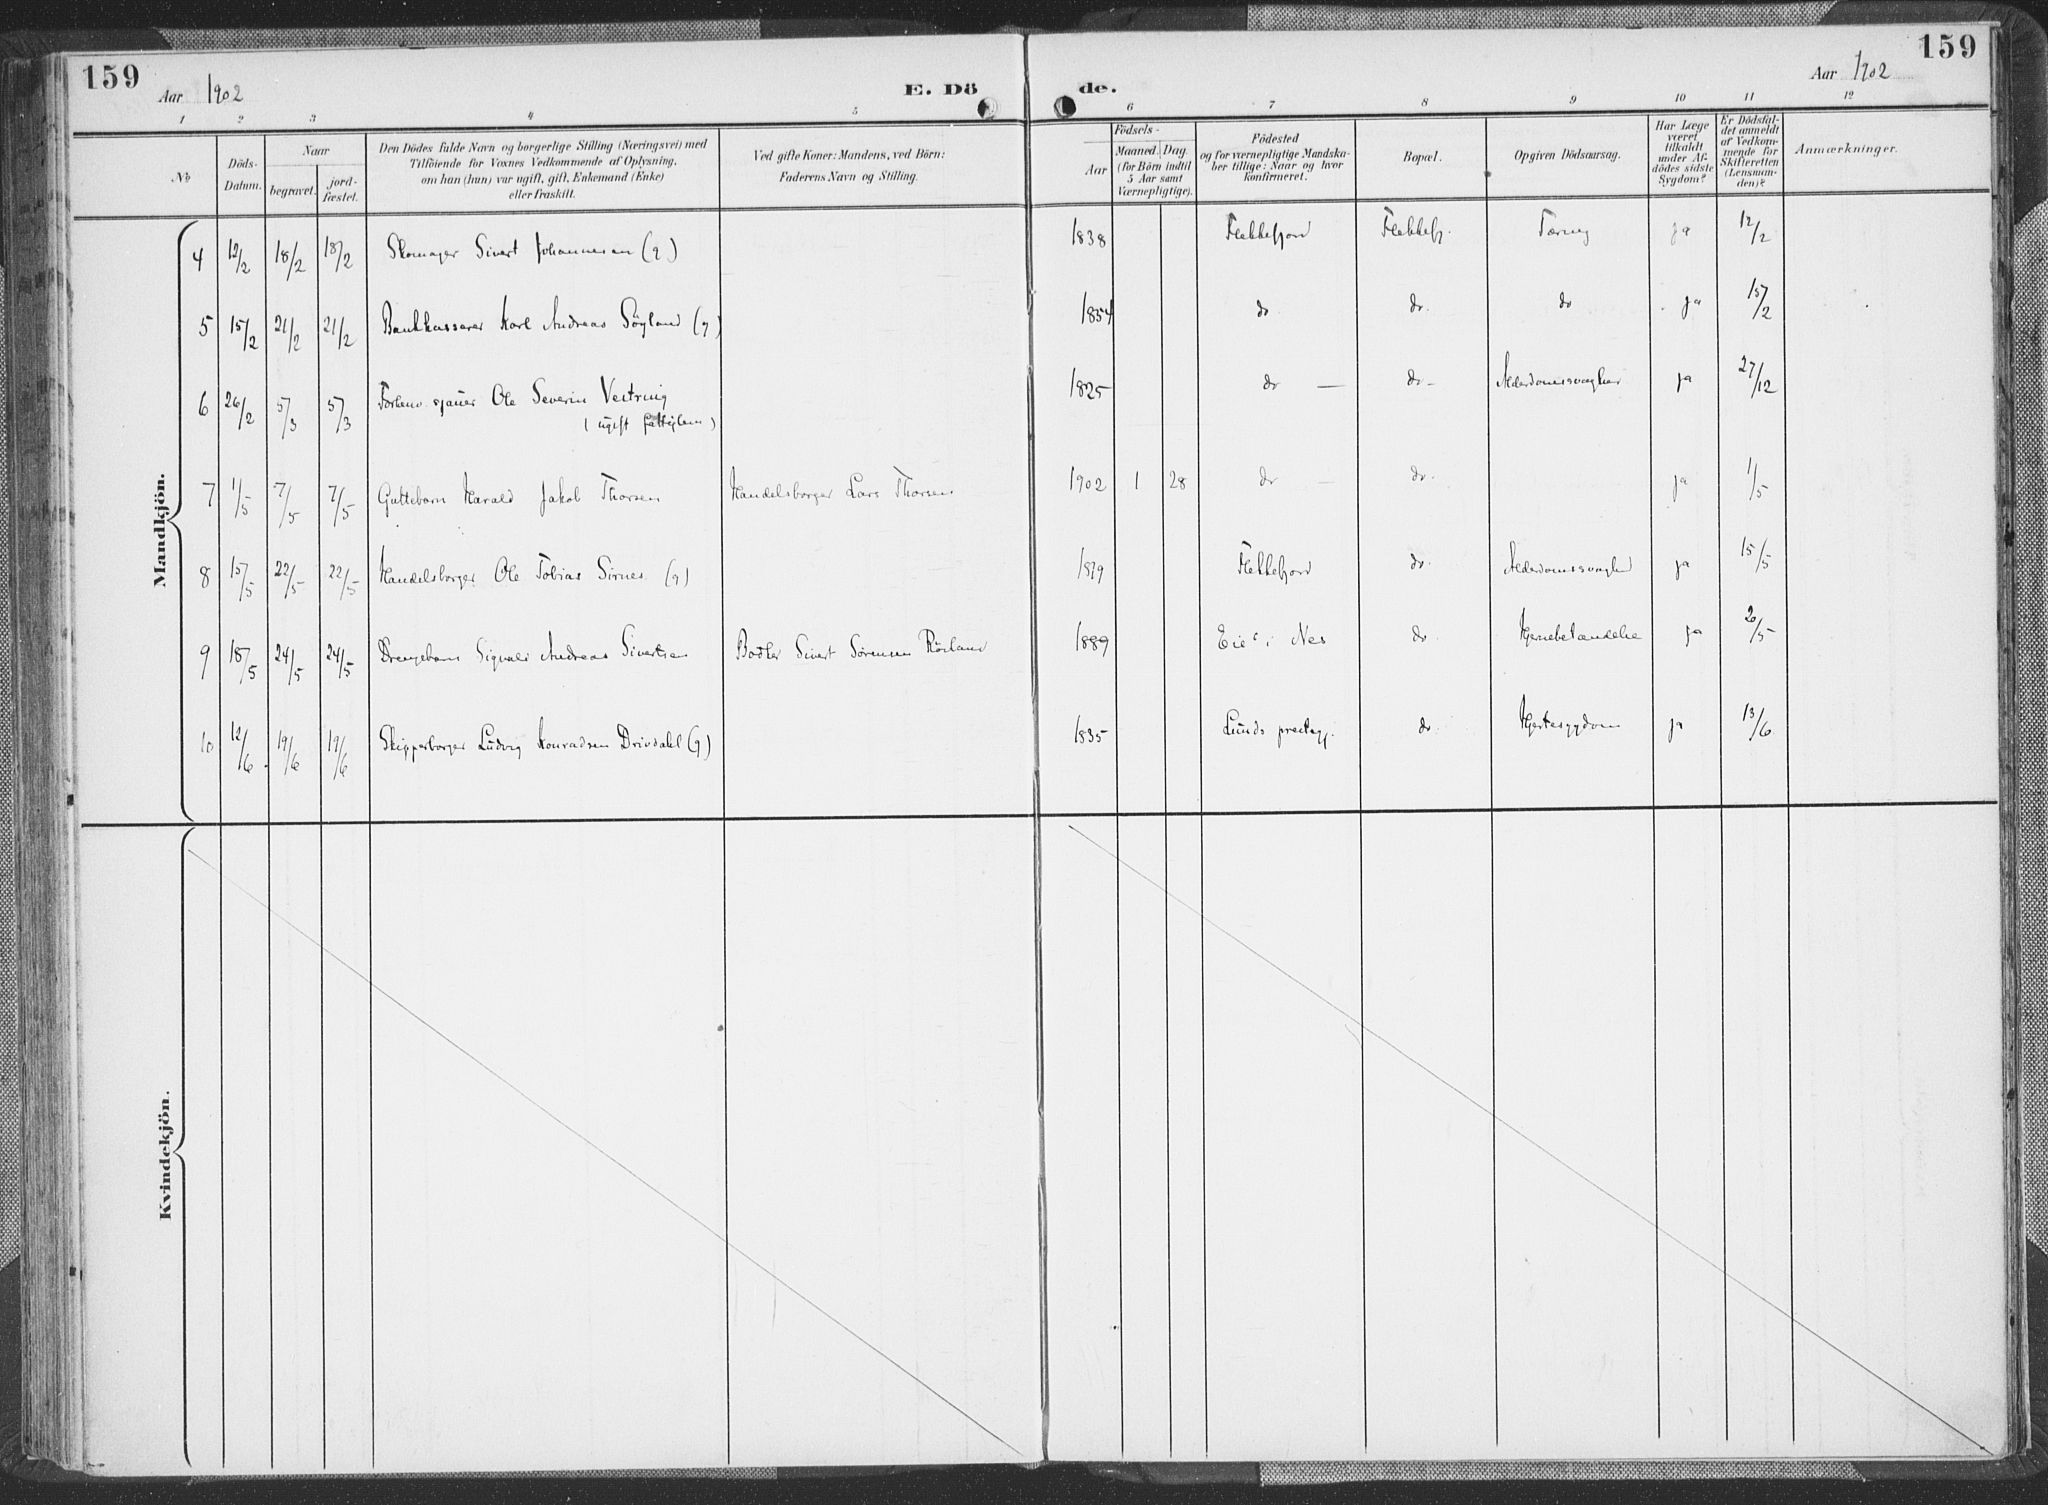 159
Aar 1902
E. Dö
de.
Aar 1902
159
1 2 3 4 5 6 7 8 9 10 11 12
№
Döds-
Datum.
Naar
begravet.
jord-
fæstet.
Den Dödes fulde Navn og borgerlige Stilling (Næringsvei) med
Tilföiende for Voxnes Vedkommende af Oplysning,
om han (hun) var ugift, gift, Enkemand (Enke)
eller fraskilt.
Ved gifte Koner: Mandens, ved Börn:
Faderens Navn og Stilling.
Födsels-
Aar
Maaned. Dag.
(for Börn indtil
5 Aar samt
Værnepligtige).
Födested
og for værnepligtige Mandska-
ber tillige: Naar og hvor
konfirmeret.
Bopæl.
Opgiven Dödsaarsag.
Har Læge
været
tilkaldt
under Af-
dödes sidste
Sygdom?
Er Dödsfal-
det anmeldt
af Vedkom-
mende for
Skifteretten
(Lensman-
den)?
Anmærkninger.
Mandkjön.
4 12/2 18/2 18/2 Skomager Sivert Johannesen (g) 1838 Flekkefjord Flekkefj. Tæring ja 12/2
5 15/2 21/2 21/2 Bankkasserer Karl Andreas Söyland (g) 1854 do do do ja 15/2
6 26/2 5/3 5/3 sjauer Ole Severin 1825 do — do — Alderdomssvaghed ja 27/12
( ugift fattiglem )
7 1/5 7/5 7/5 Guttebarn Harald Jakob Thorsen Handelsborger Lars Thorsen 1902 1 28 do — do. ja 1/5
8 15/5 22/5 22/5 Handelsborger Ole Tobias Sirnes (g) 1819 Flekkefjord do. Alderdomssvaghed ja 15/5
9 18/5 24/5 24/5 Drengebarn Sigvald Andreas Sivertsen Bödker Sivert Sörensen 1889 Eie i Nes do Hjernebetændelse ja 20/5
10 12/6 19/6 19/6 Skipperborger Ludvig Konradsen Drivdahl (g) 1835 Lunds prestegj. do. Hjertesygdom ja 13/6
Kvindekjön.